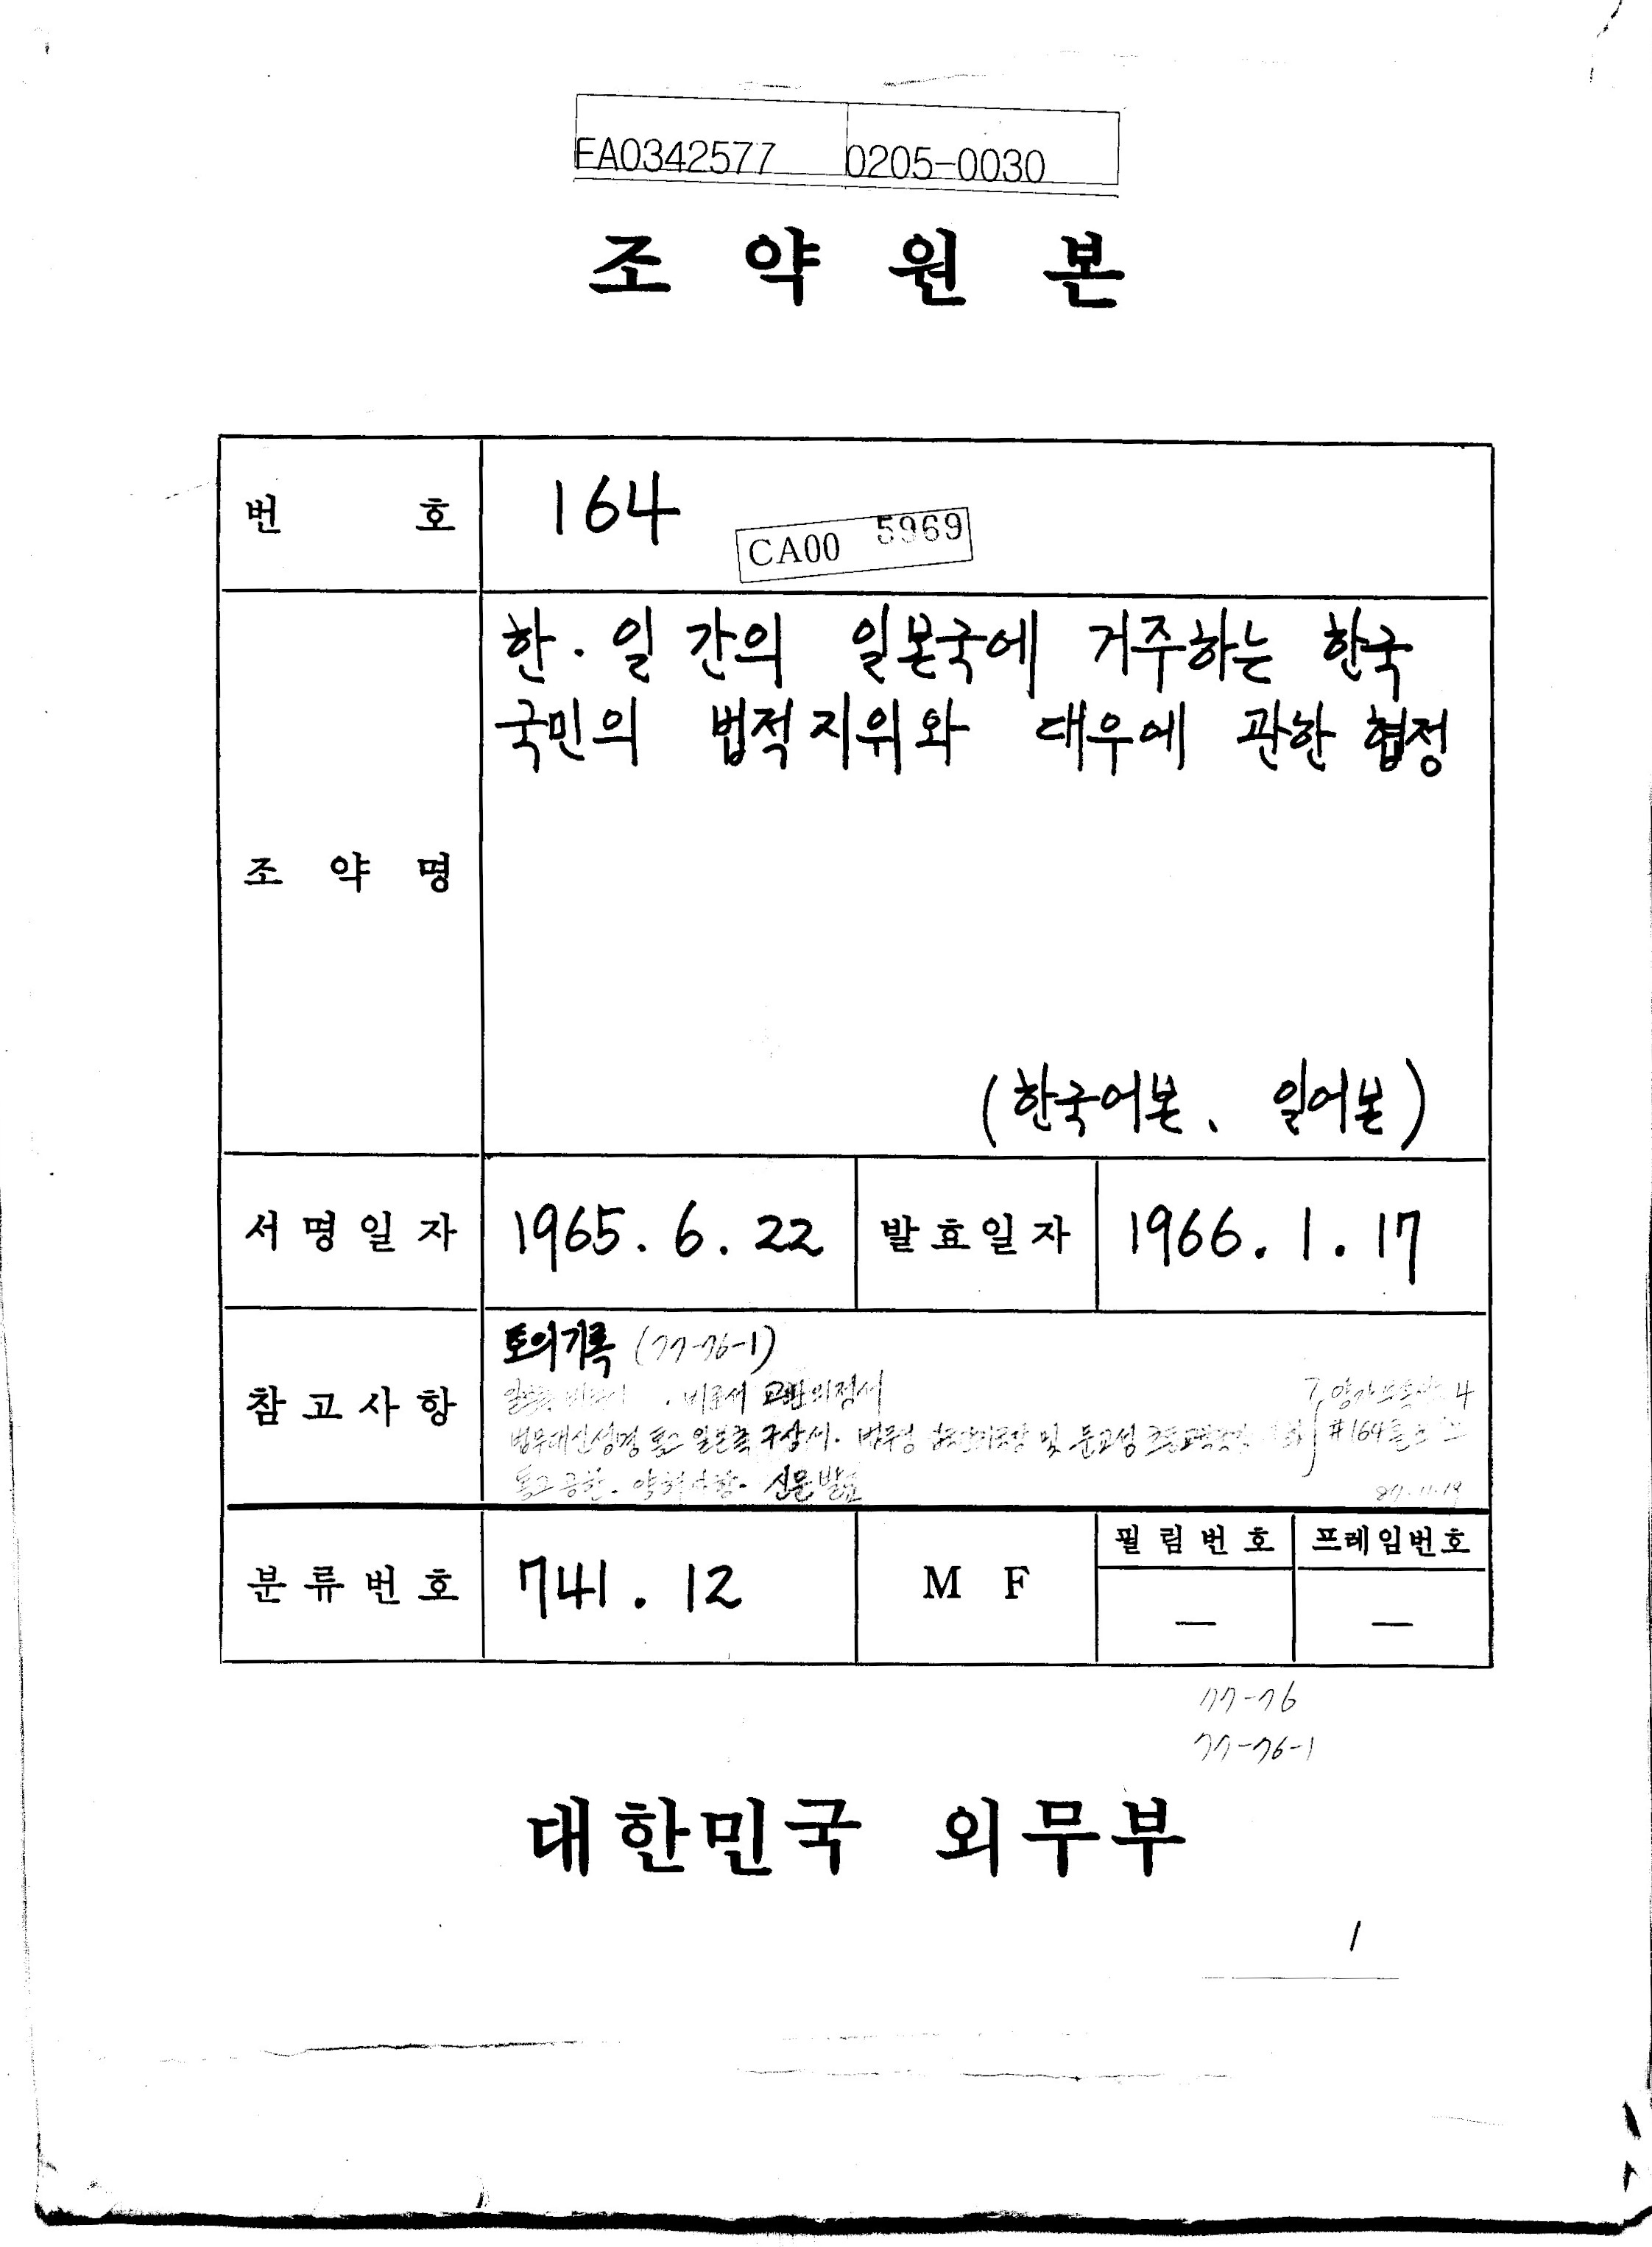 FA0342577 0205-0030
조약원본
번호 164
CA00 5969
조약명
한·일간의 일본국에 거주하는 한국
국민의 법적지위와 대우에 관한 협정
(한국어본、 일어본)
서명일자 1965. 6. 22 발효일자 1966. 1. 17
참고사항
토의기록 (77-76-1)
비준서 교환의정서
법무대신성명 통고 일본측 구상서. 및
#164
신문발표
87.11.19
분류번호 741.12 M F 필림번호 프레임번호
— —
77-76
77-76-1
대한민국 외무부
1